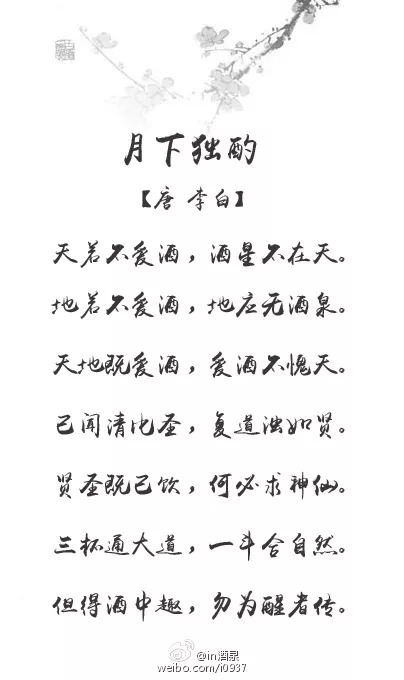 月下独酌
【唐 李白】
天若不爱酒，酒星不在天。
地若不爱酒，地应无酒泉。
天地既爱酒，爱酒不愧天。
已闻清比圣，复道浊如贤。
贤圣既已饮，何必求神仙。
三杯通大道，一斗合自然。
但得酒中趣，勿为醒者传。
@in酒泉
weibo.com/i0937